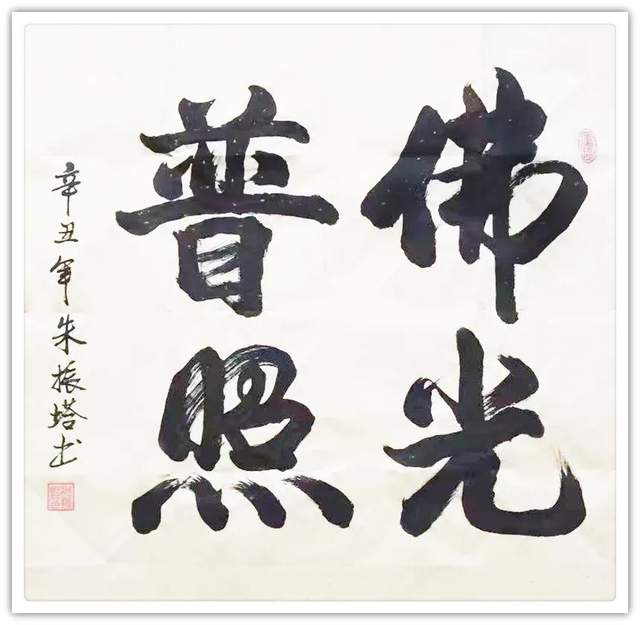 佛光
普照
辛丑年朱振塔书